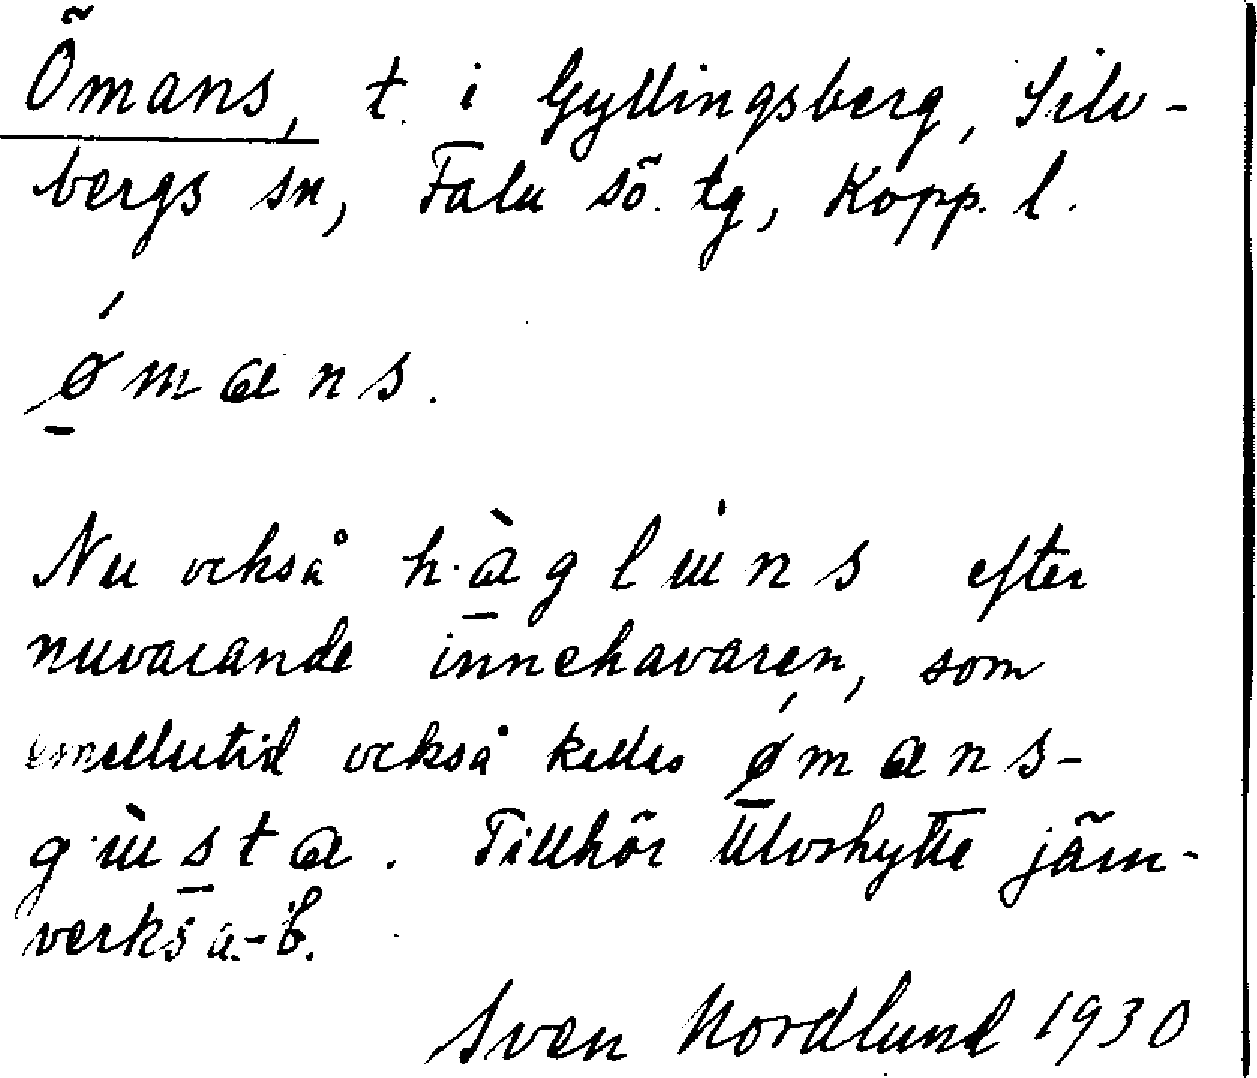 Ömans, t. i Gyllingsberg, Silv-
bergs sn, Falu sö. tg, Kopp. l.
ǿmans.
Nu också hàglɯns efter
nuvarande innehavaren, som
emellertid också kallas ǿmans-
gɯ̀sta. Tillhör Ulvshytte järn-
verks a.-b.
Sven Nordlund 1930